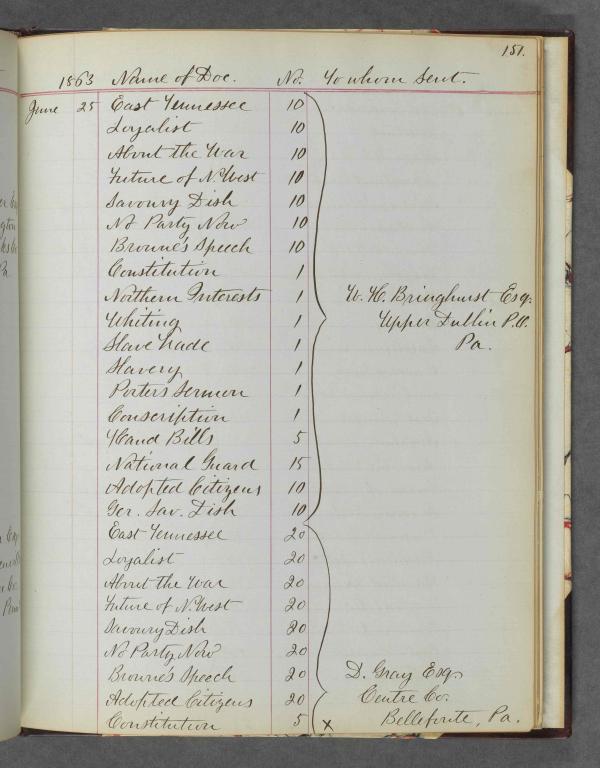 151.
1863 Name of Doc. No. To whom Sent.
June 25 East Tennessee 10
Loyalist 10
About the War 10
Future of N. West 10
Savoury Dish 10
No Party Now 10
Browne's Speech 10
Constitution 1
Northern Interests 1 W. H. Bringhurst Esq.
Whiting 1 Upper Dublin P.O.
Slave Trade 1 Pa.
Slavery 1
Porter's Sermon 1
Conscription 1
Hand Bills 5
National Guard 15
Adopted Citizens 10
Ger. Sav. Dish 10
East Tennessee 20
Loyalist 20
About the War 20
Future of N. West 20
Savoury Dish 20
No Party Now 20
Browne's Speech 20 D. Gray Esq.
Adopted Citizens 20 Centre Co.
Constitution 5 x Bellefonte, Pa.